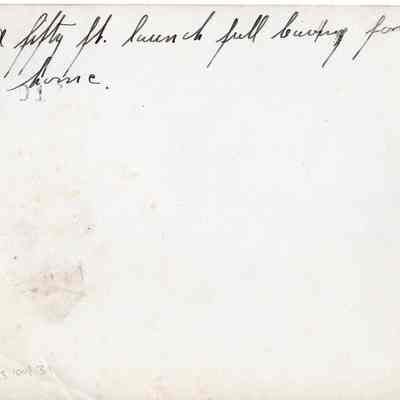 fifty ft. launch full leaving for
home.